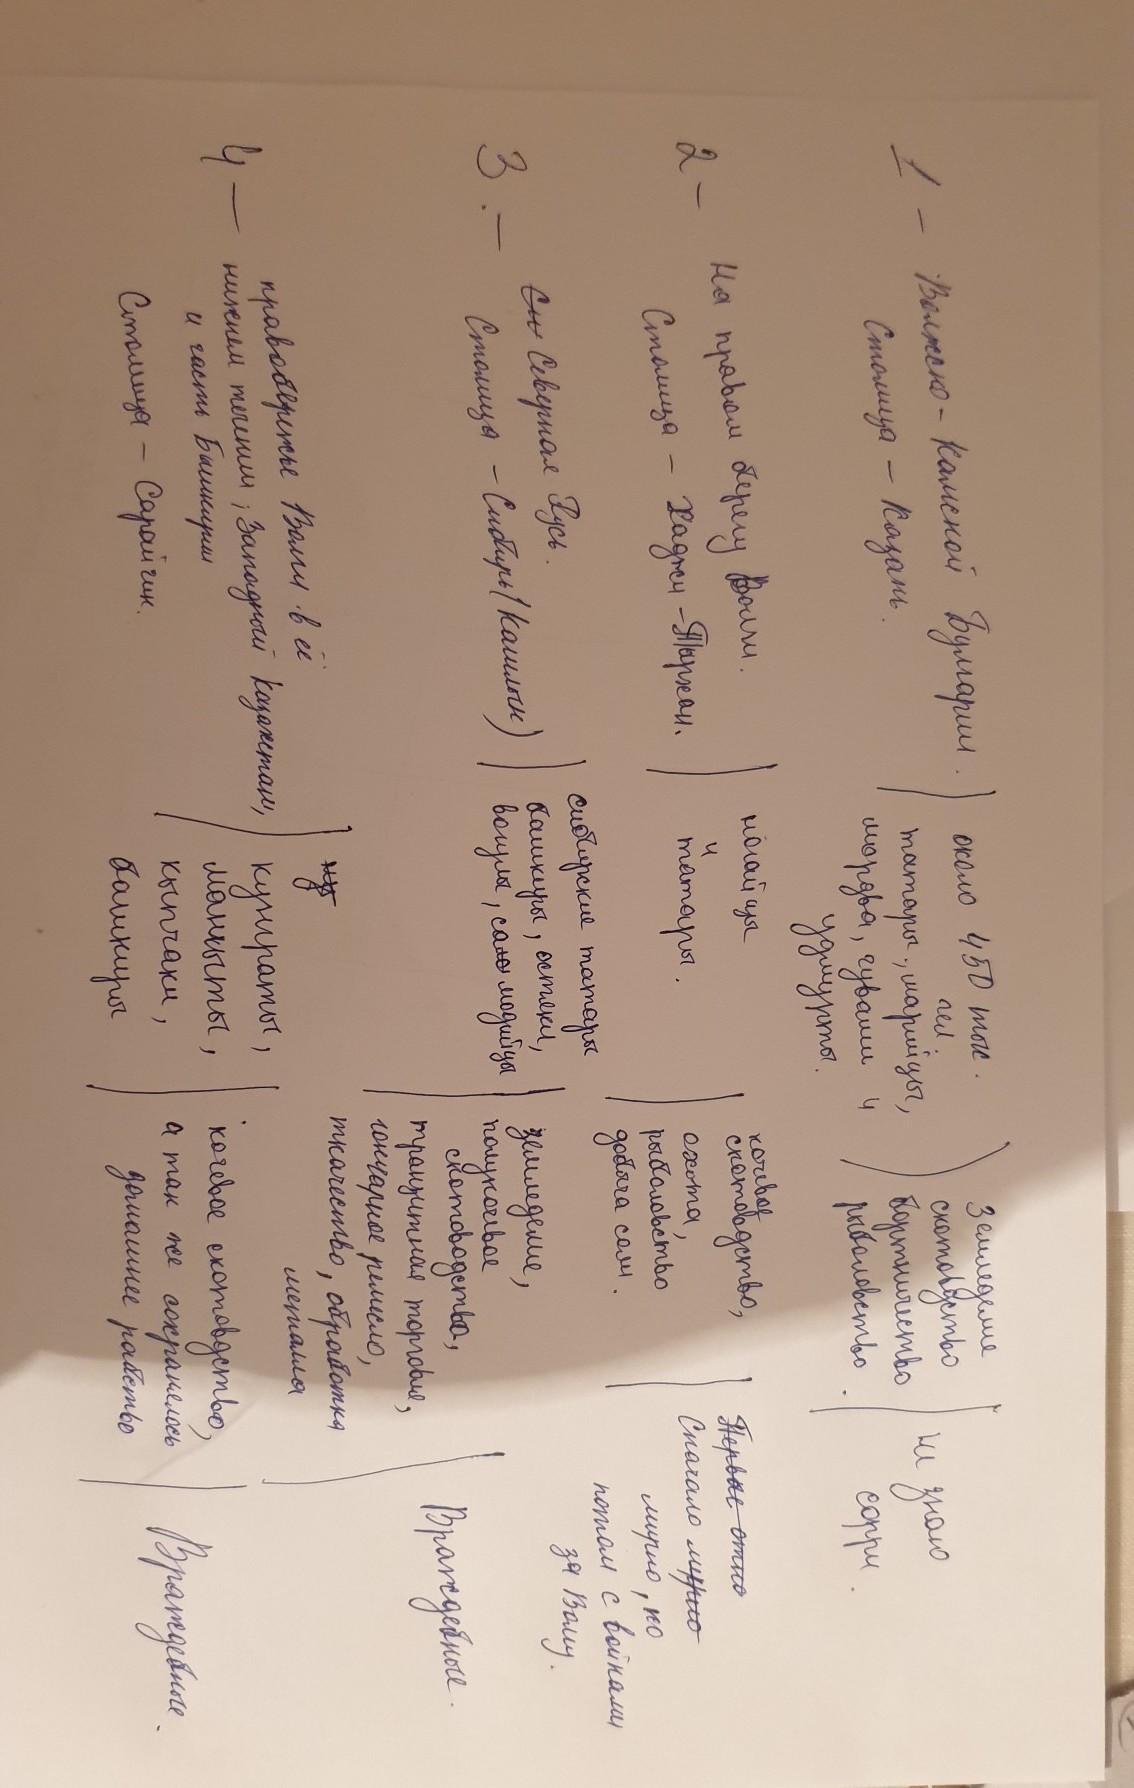 1 – Волжско-Камской Булгарии.
Столица – Казань.
около 450 тыс.
чел.
татары, марийцы,
мордва, чуваши и
удмурты.
Земледелие
скотовдство
бортничество
рыболовство.
не знаю
сорри.
2 – На правом берегу Волги.
Столица – Хаджи-Тархан.
ногайцы
и
татары.
кочевое
скотоводство,
охота,
рыболовство
добыча соли.
Первые отно
Сначало мирно
мирно, но
потом с войнами
за Волгу.
3. – Северная Русь.
Столица – Сибирь (Кашлык)
сибирские татары
башкиры, остяки,
вогулы, самодийцы
земледелие,
полукочевое
скотоводство,
транзитная торговля,
гончарное ремесло,
ткачество, обработка
металла
Враждебные.
4 – правобережье Волги в её
нижнем течении, Западный Казахстан,
и часть Башкирии
Столица – Сарайчик.
кунграты,
мангыты,
кыпчаки,
башкиры
кочевое скотовдство,
а так же сохранелось
домашнее рабство
Враждебные.